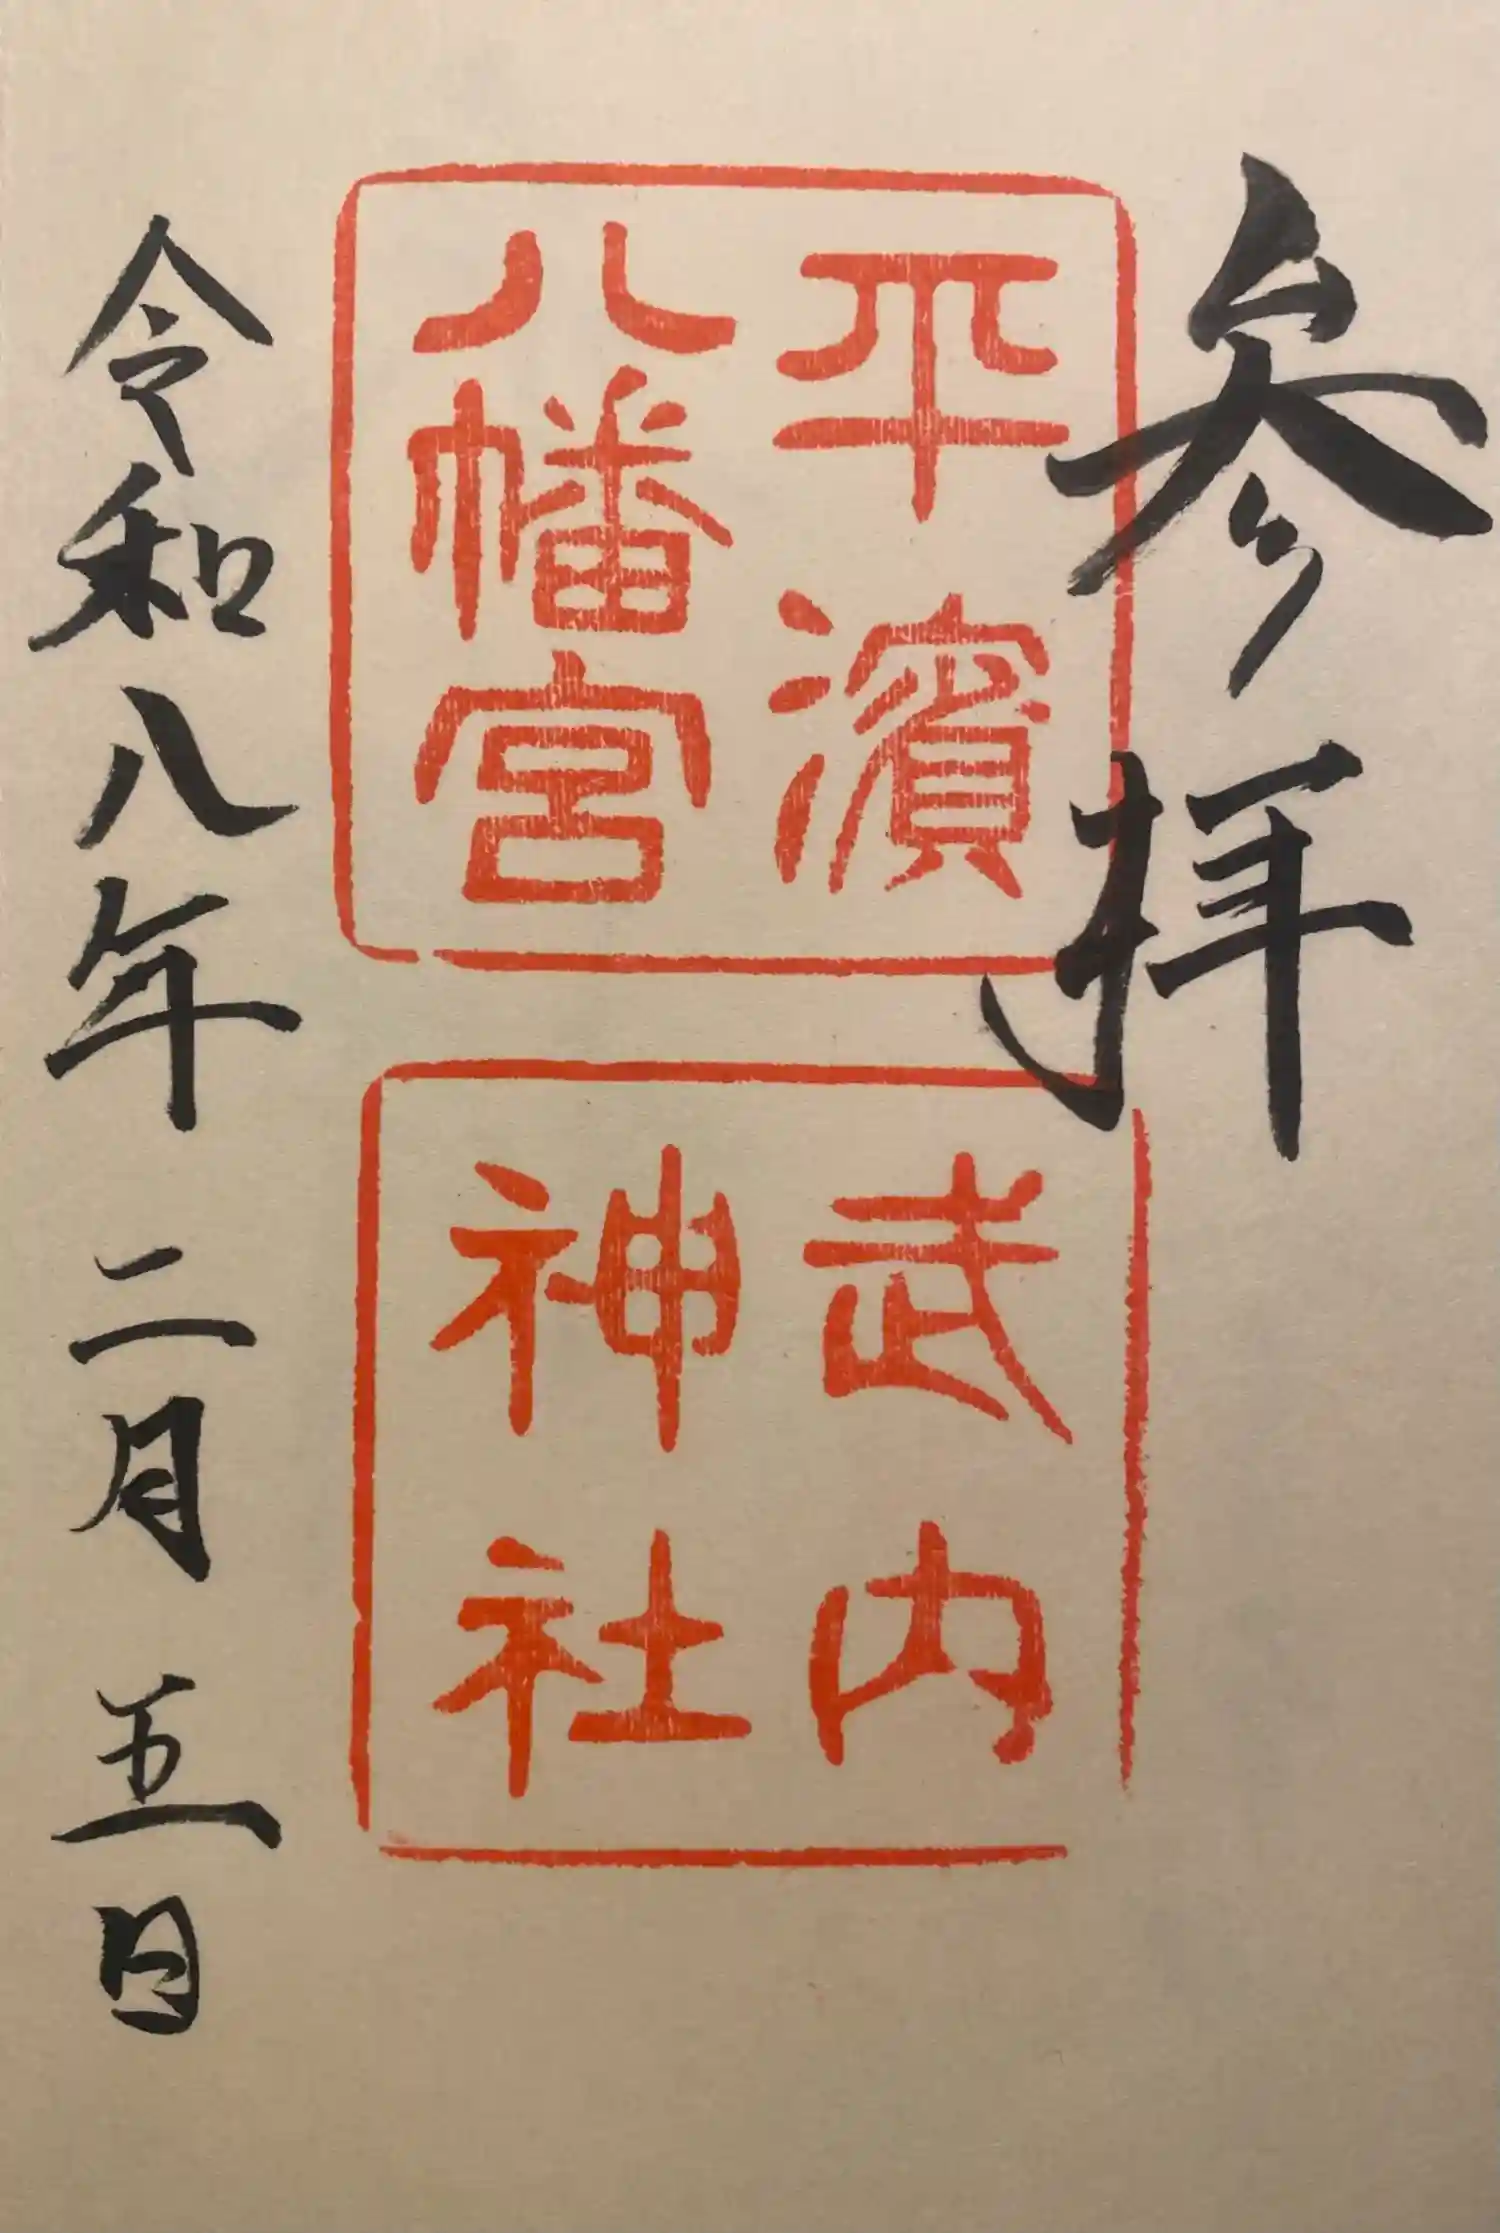 参拝
平濱
八幡宮
武内
神社
令和八年二月五日